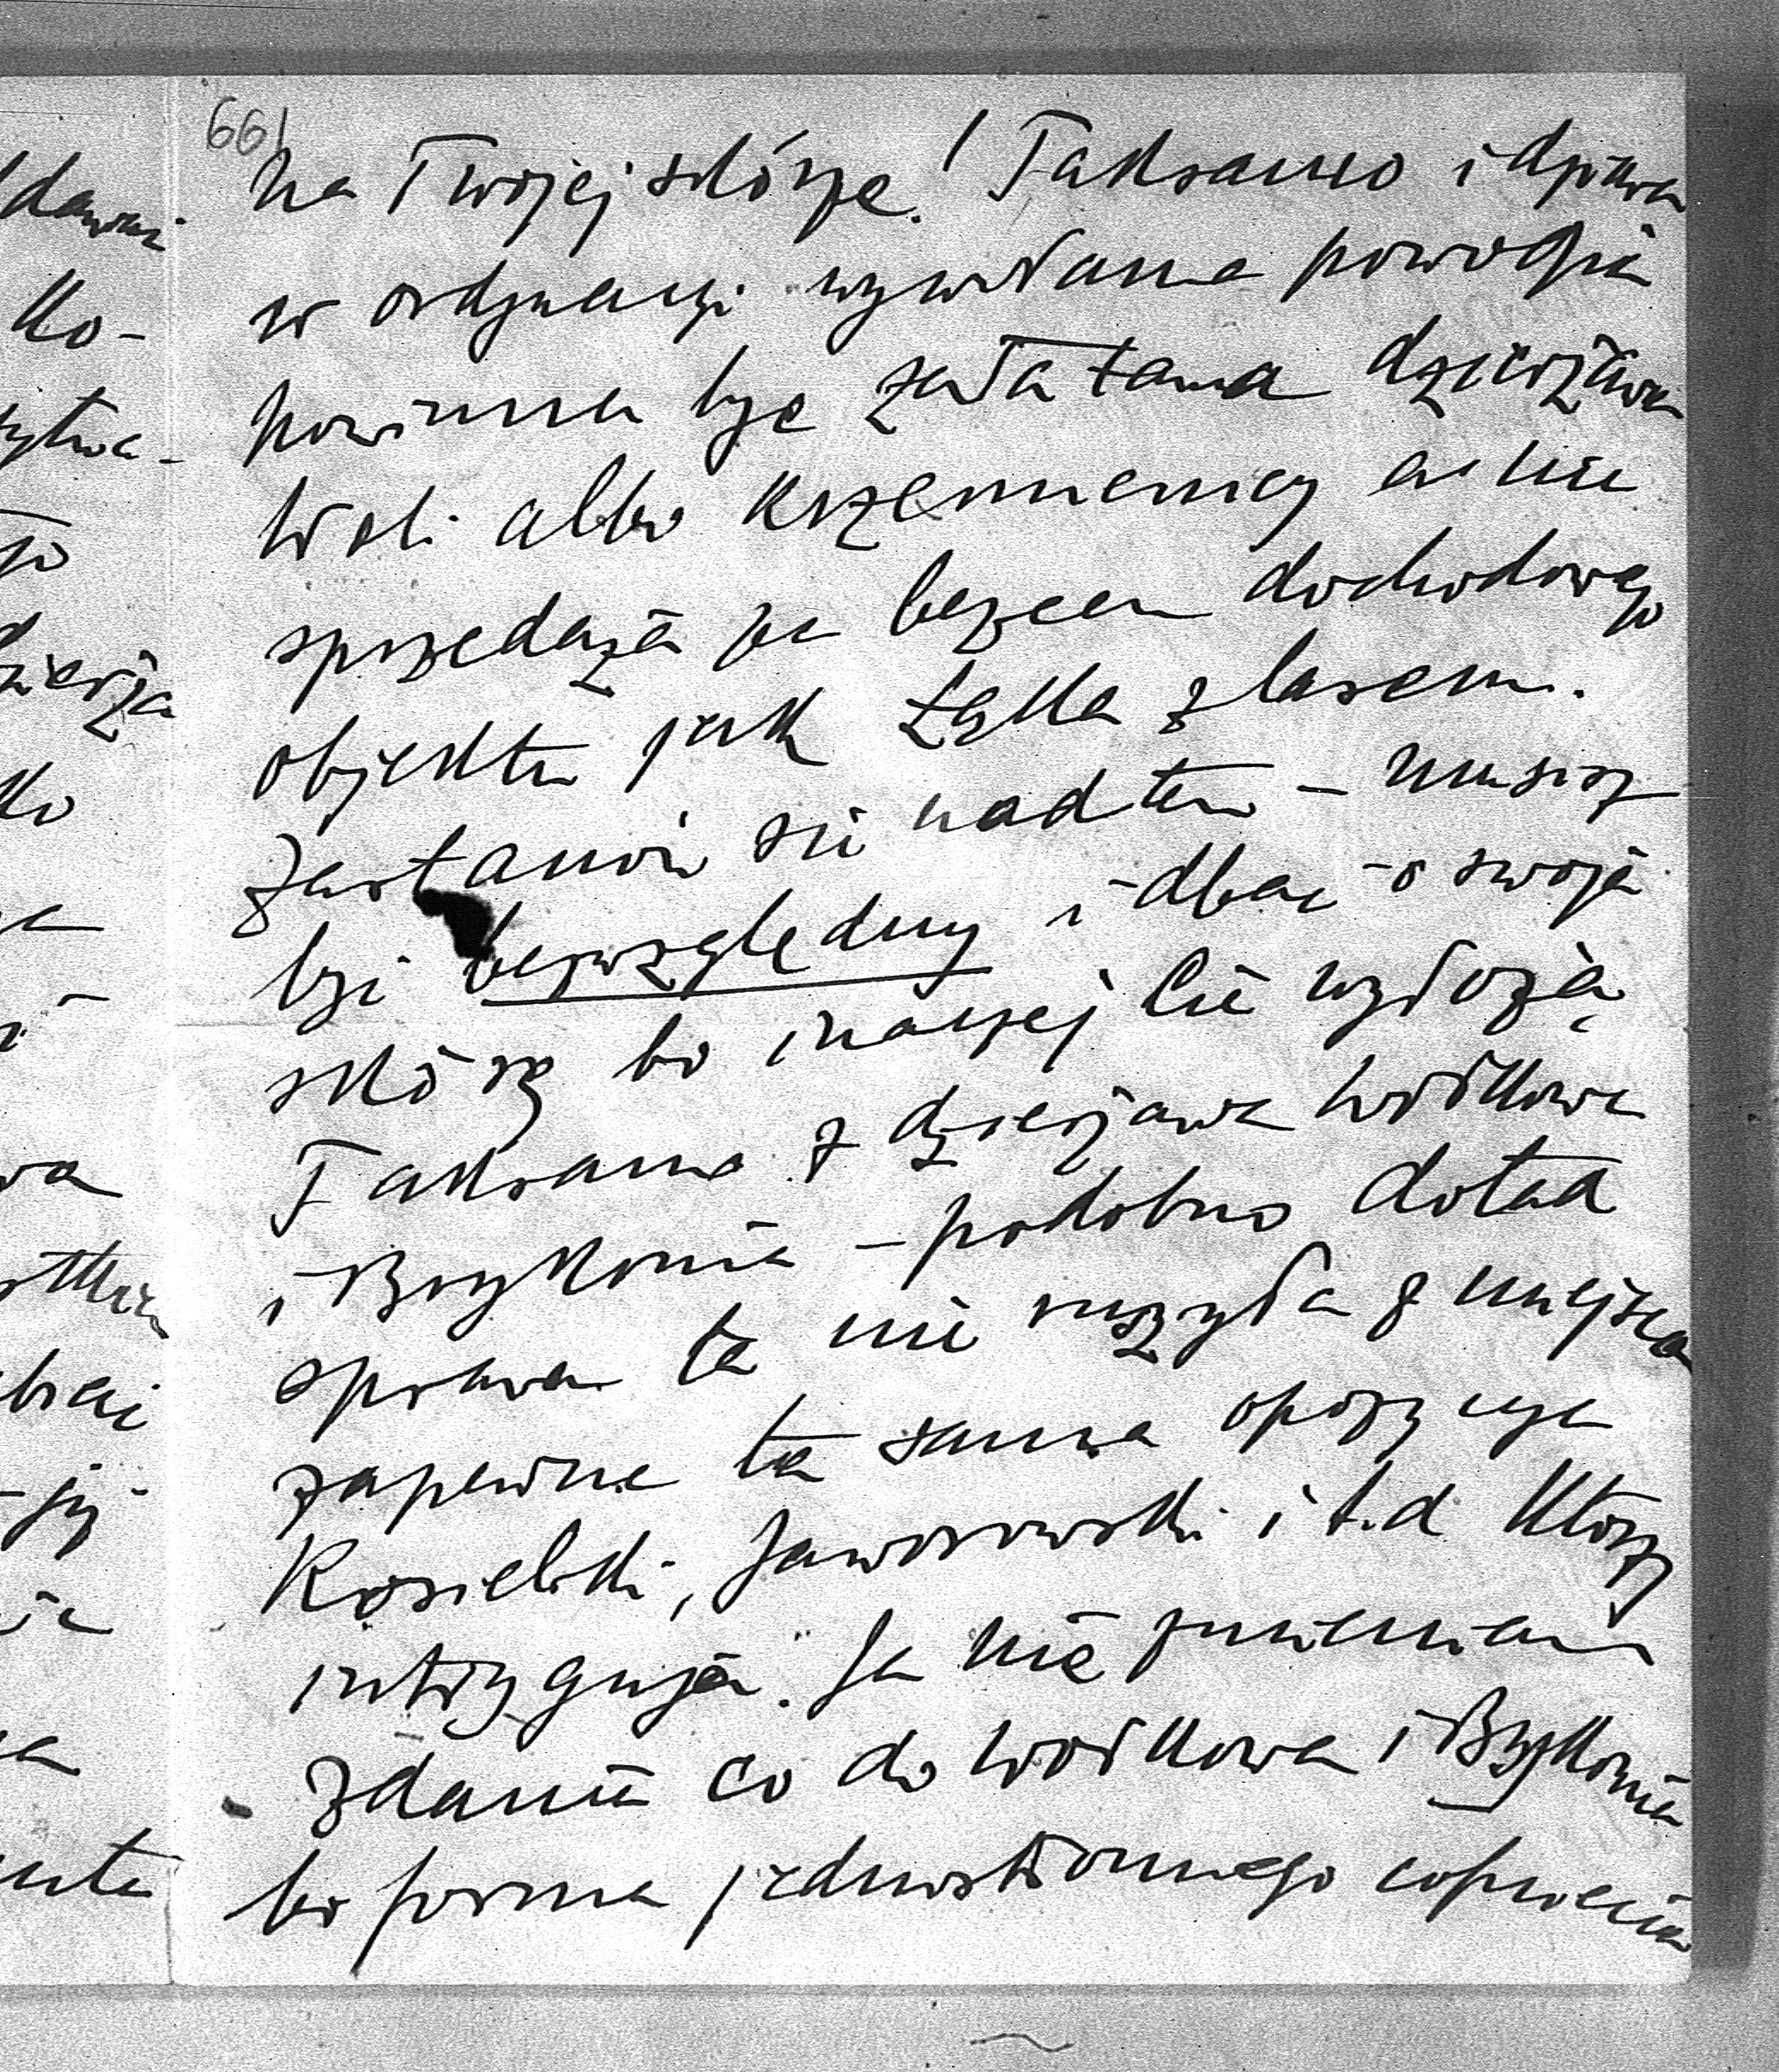 661
na Twojej skórze! Taksamo i dziura
w ordynacyi wywołana powodzią
powinna być załatana dzierżawą
Woli albo Krzemienicy a nie
sprzedażą za bezcen dochodowego
objektu jak Łąka z lasem.
Zastanów się nad tem – musisz
być bezwzględny i dbać o swoją
skórę bo inaczej Cię wyłożą
Taksamo z dzierżawą Wołkowa
i Brykonia – podobno dotąd
sprawa ta nie ruszyła z miejsca
zapewne ta sama opozycya
Kosielski, Jaworowski i t.d. którzy
intrygują. Ja nie zmieniam
zdania co do Wołkowa i Brykonia
bo forma jednostronnego cofnięcia
dawać
ko-
rzą
ko
wa